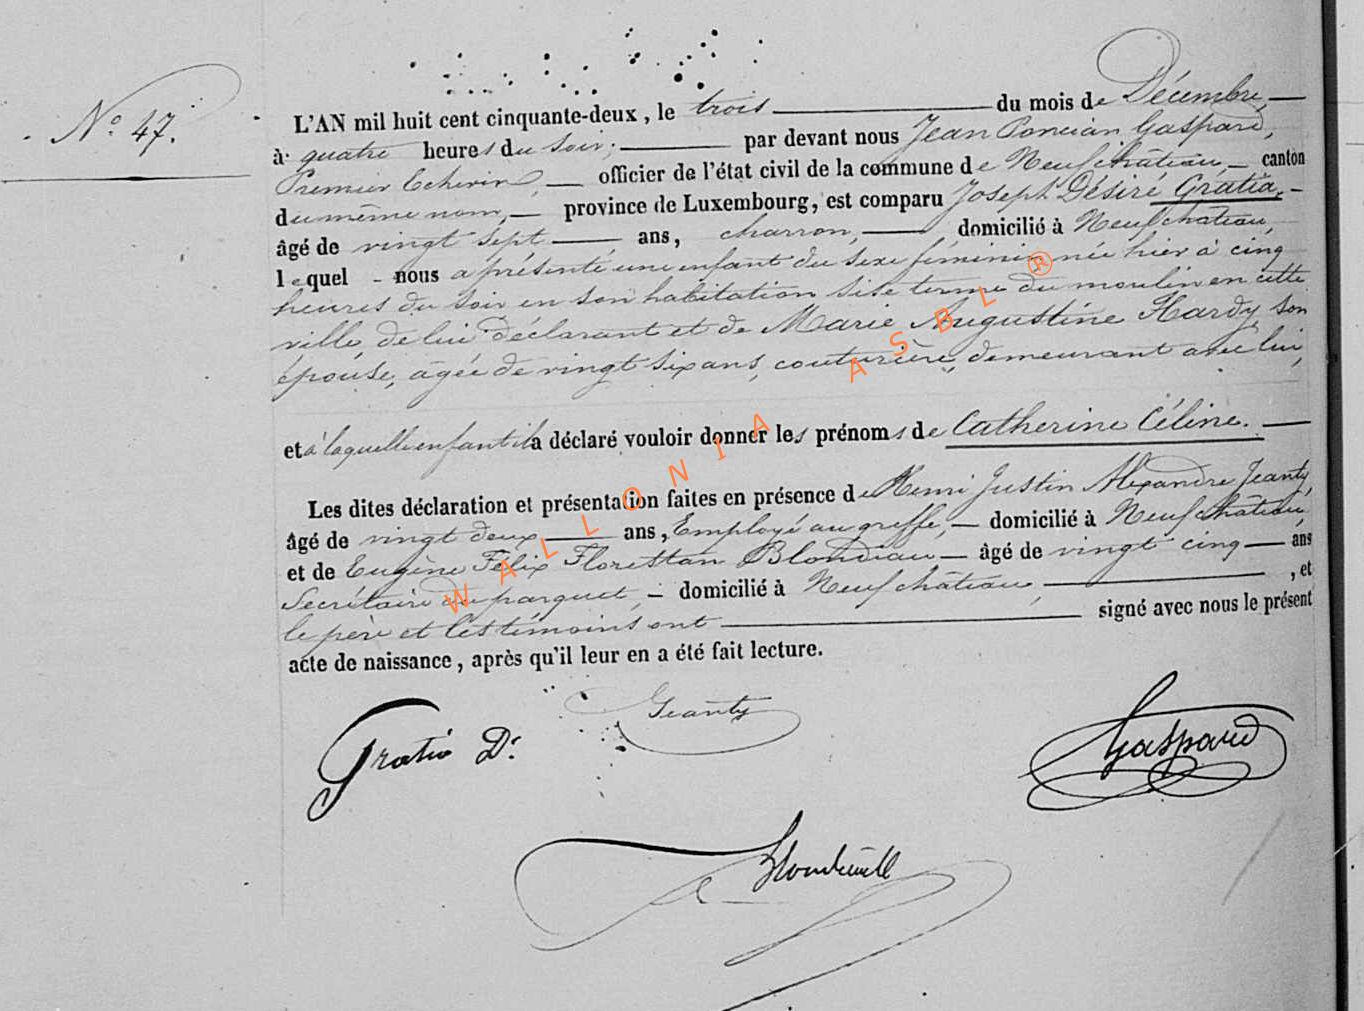 N° 47.
L'AN mil huit cent cinquante-deux, le trois du mois de Décembre,
à quatre heures du soir, par devant nous Jean Poncian Gaspard,
Premier Echevin, officier de l'état civil de la commune de Neufchâteau, canton
du même nom, province de Luxembourg, est comparu Joseph Désiré Gratia,
âgé de vingt sept ans, charron, domicilié à Neufchâteau,
lequel nous a présenté une enfant du sexe féminin née hier à cinq
heures du soir en son habitation sise terme du moulin en cette
ville, de lui déclarant et de Marie Augustine Hardy, son
épouse, agée de vingt six ans, couturière, demeurant avec lui,
et à laquelle enfant il a déclaré vouloir donner les prénoms de Catherine Céline.
Les dites déclaration et présentation faites en présence de Remi Justin Alexandre Jeanty,
âgé de vingt deux ans, Employé au greffe, domicilié à Neufchâteau,
et de Eugène Félix Florestan Blondiau âgé de vingt cinq ans
Secrétaire du parquet, domicilié à Neufchâteau, , et
le père et les témoins ont signé avec nous le présent
acte de naissance, après qu'il leur en a été fait lecture.
Jeanty
Gratia D.
Gaspard
WALLONIA ASBL ®